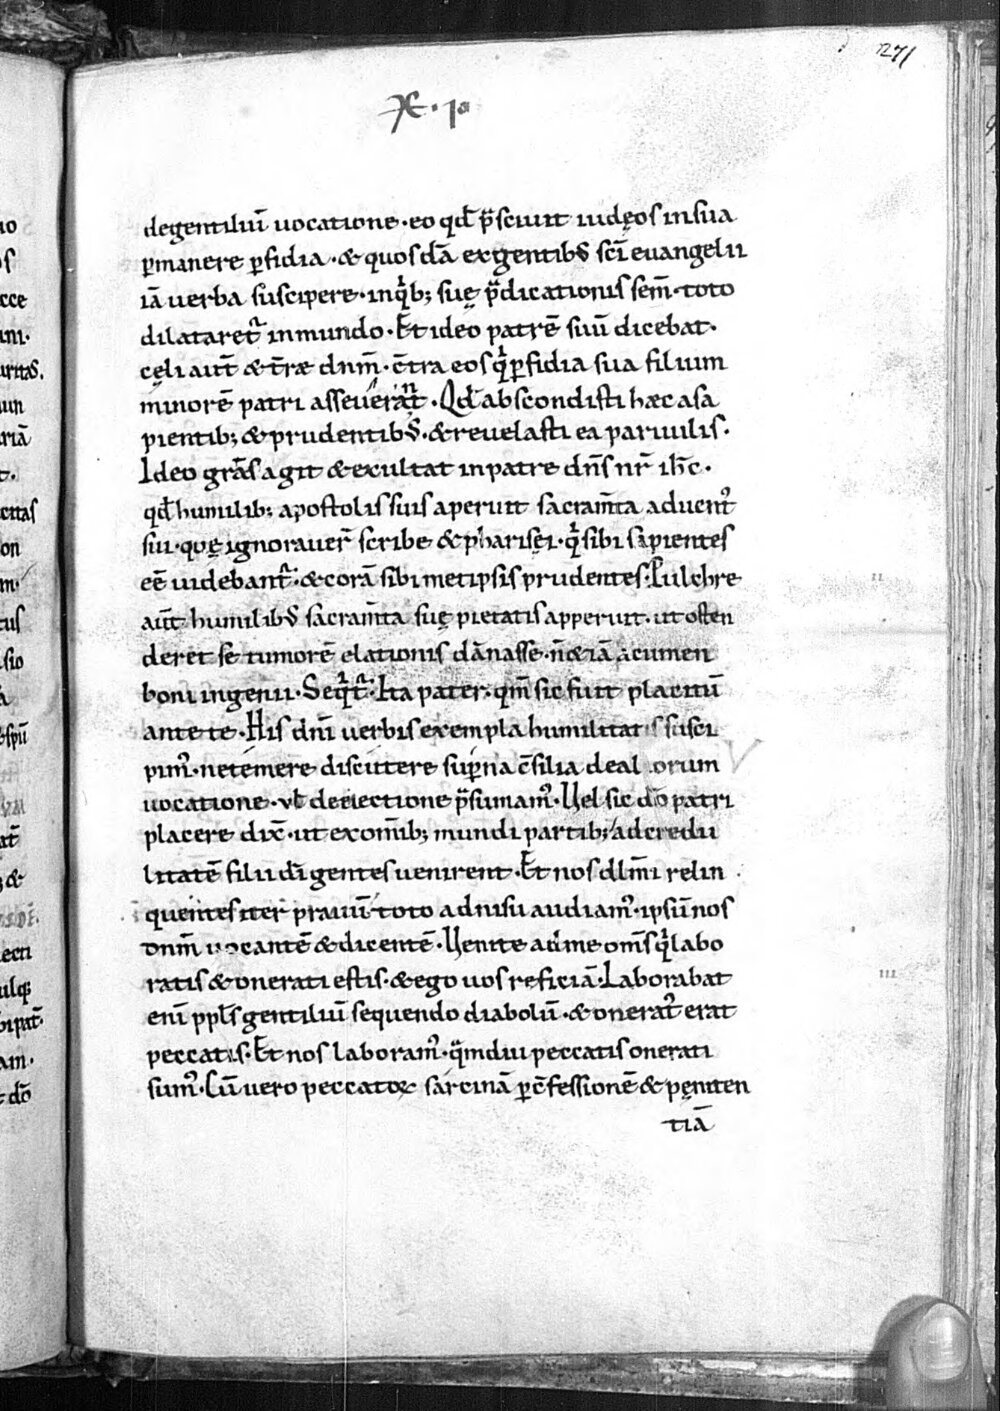 271
degentiliu᷑ uocatione · eo qd̄ p̄sciuit iudęos insua
ꝑmanere ꝑfidia · & quosdā exgentibꝰ sc̄i euangelii
iā uerba suscipere · inqͥb; suę p̄dicationis sem̄ · toto
dilataret᷑ inmundo · Et ideo patrē suū dicebat ·
cęli aut̄ & t̄ræ dn̄m · c̄tra eos qͥ ꝑfidia sua filium
minorē patri asseuerant · Qd̄ abscondisti hæc asa
pientib; & prudentibꝰ · & reuelasti ea paruulis ·
Ideo gr̄as agit & exultat inpatre dn̄s nr̄ ih̄c ·
qd̄ humilib; apostolis suis aperuit sacram̄ta aduentꝰ
sui · quę ignorauer̄ scribe & pharisęi · qͥ sibi sapientes
eē uidebant᷑ · & corā sibi metipsis prudentes · Pulchre
aut̄ humilibꝰ sacram̄ta suę pietatis apperuit · ut osten
deret se tumorē elationis dānasse · n̄ & iā acumen
boni ingenii · Seqͥt᷑ · Ita pater · qm̄ sic fuit placitū
ante te · His dn̄i uerbis exempla humilitatis susci
pimꝰ · ne temere discutere suꝑna c̄silia de al orum
uocatione · ul̄ deiectione p̄sumamꝰ · Uel sic dō patri
placere dix̄ · ut exomīb; mundi partib; adcredu
litatē filii dī gentes uenirent · Et nos dl̄mi relin
quentes iter prauū · toto adnisu audiamꝰ · ipsū nos
dn̄m uocantē & dicentē · Uenite ad me om̄s qͥ labo
ratis & onerati estis · & ego uos reficiā · Laborabat
enī ppl̄s gentiliū sequendo diabolū · & oneratꝰ erat
peccatis · Et nos laboramꝰ · qᷓmdiu peccatis onerati
sumꝰ · Cū uero peccatoꝝ sarcinā ꝑ c̄fessionē & pęniten
tiā
ii
iii